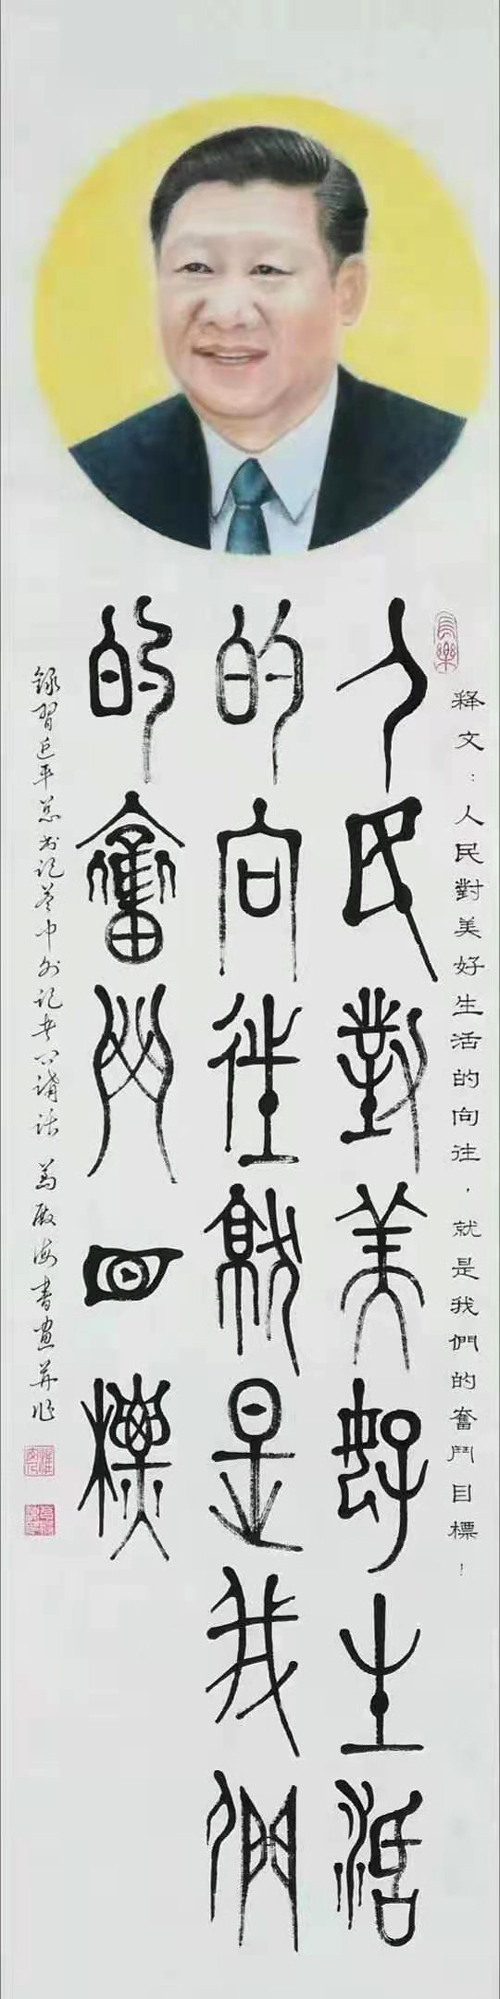 释文：人民對美好生活的向往，就是我們的奮鬥目標！
長樂
人民對美好生活
的向往就是我們
的奮鬥目標
錄習近平总书记答中外记者 書畫并作